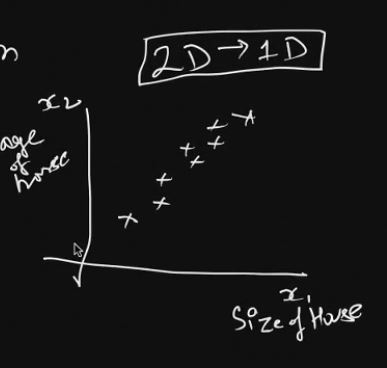 n
2D → 1D
x₂
age
of
house
x₁
Size of House